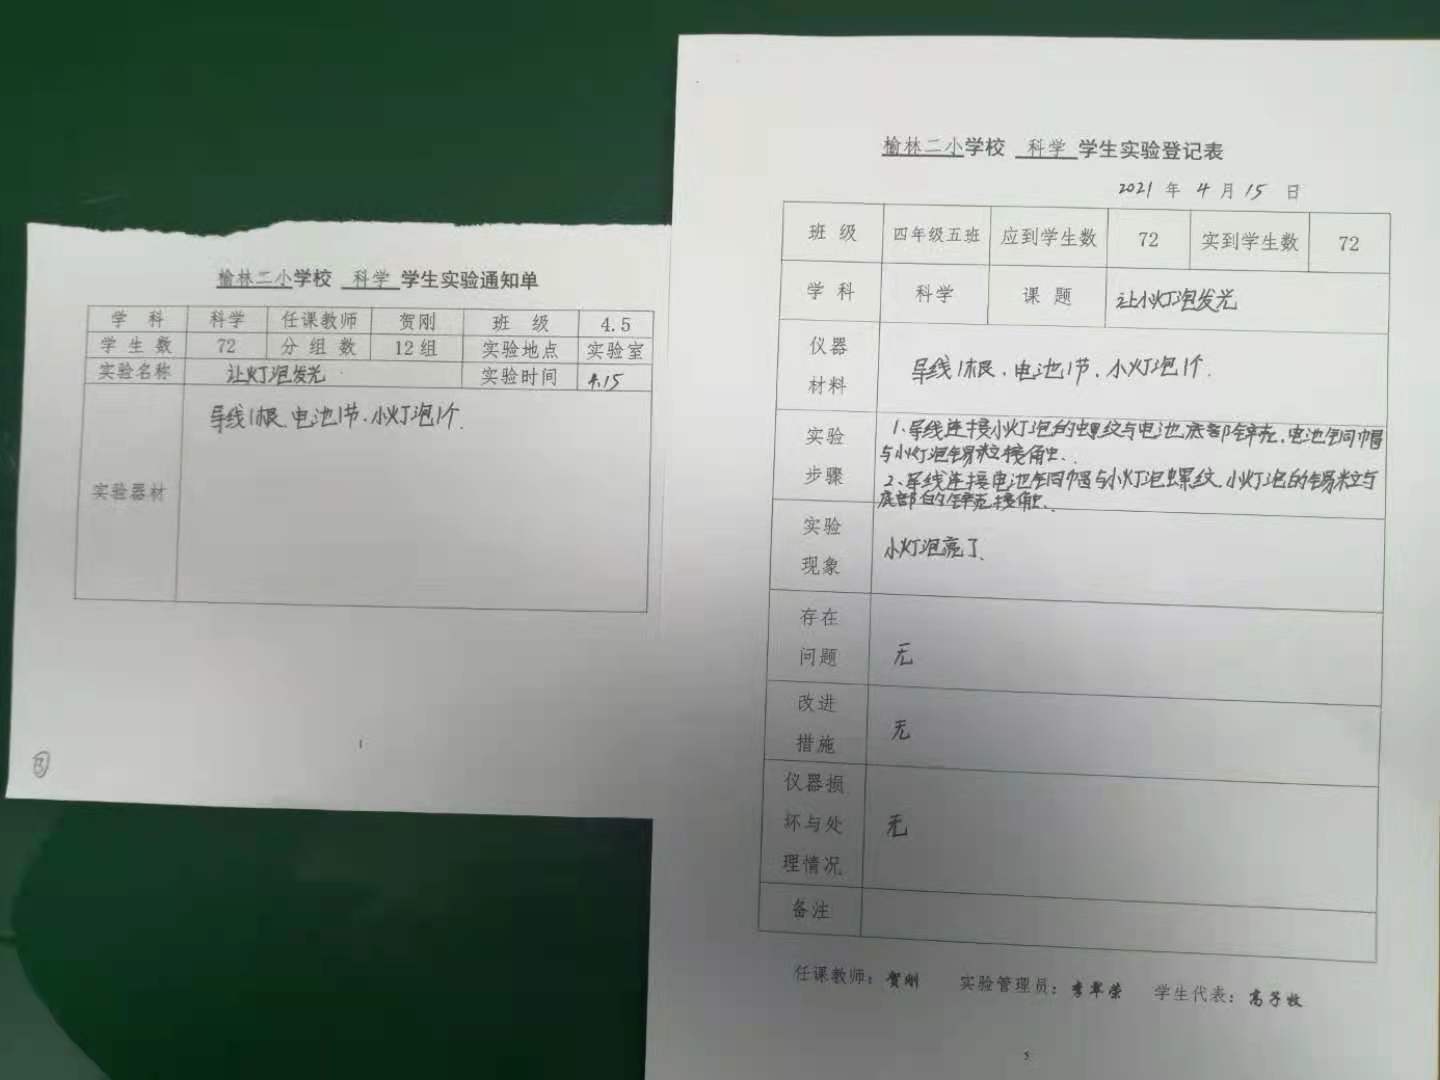 榆林二小学校 科学 学生实验通知单
学 科 科学 任课教师 贺刚 班 级 4.5
学 生 数 72 分 组 数 12组 实验地点 实验室
实验名称 让灯泡发光 实验时间 4.15
实验器材 导线1根、电池1节、小灯泡1个.
1
③
榆林二小学校 科学 学生实验登记表
2021 年 4 月 15 日
班 级 四年级五班 应到学生数 72 实到学生数 72
学 科 科学 课 题 让小灯泡发光
仪器
材料
导线1根、电池1节、小灯泡1个.
实验
步骤
1、导线连接小灯泡的螺纹与电池底部锌壳,电池铜帽
与小灯泡锡粒接触.
2、导线连接电池铜帽与小灯泡螺纹,小灯泡的锡粒与
底部的锌壳接触.
实验
现象
小灯泡亮了.
存在
问题
无
改进
措施
无
仪器损
坏与处
理情况
无
备注
任课教师：贺刚 实验管理员：李翠荣 学生代表：高子牧
5